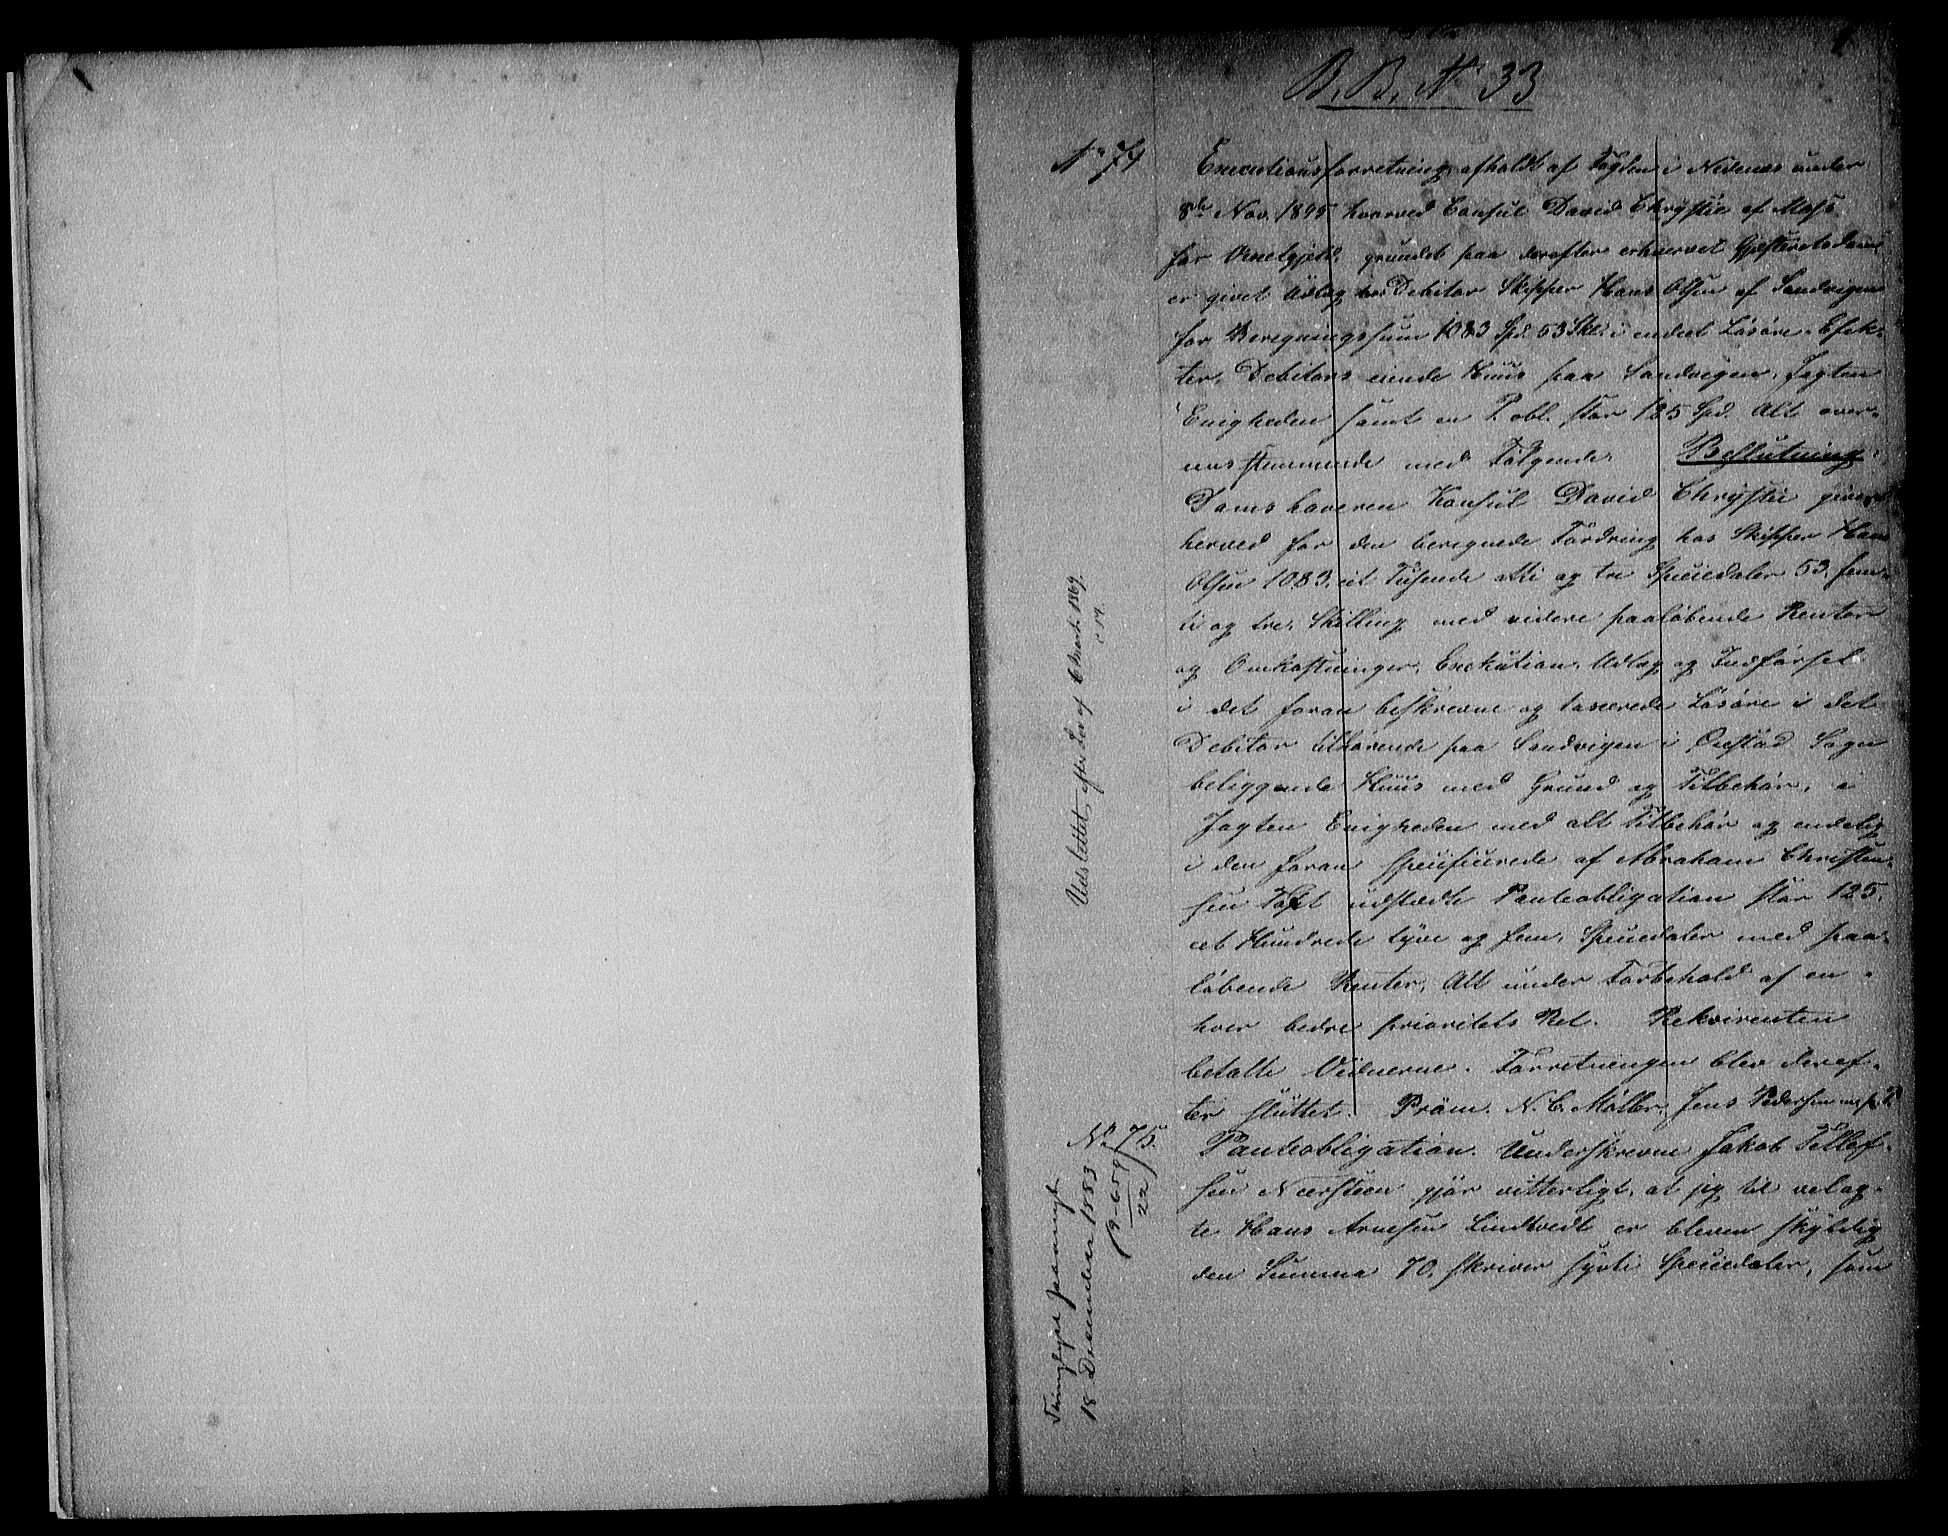 B. B. No 33
No 74
Executionsforretning afholdt af Fogden i Nedenes under
8de Nov. 1895 hvorved Consul David Chrystie af Moss
for Vexelgjeld, grundet paa derefter erhvervet Gjesteretsdom
er givet Udlæg hos Debitor Skipper Hans Olsen af Sandvigen
for Beregningssum 1083 Spd. 53 Skl. i endeel Løsøre. Efek-
ter, Debitors eiende Huus paa Sandvigen, Jagten
Enigheden samt en P. obl. stor 125 Spd. Alt over-
ensstemmende med Følgende: Beslutning.
Domshaveren Konsul David Chrystie gives
herved for den beregnede Fordring hos Skipper Hans
Olsen 1083, eit Tusende otti og tre Speciedaler 53, fem-
ti og tre, Skilling med videre paaløbende Renter
og Omkostninger, Exekution, Udlæg og Indførsel
i det foran beskrevne og taxerede Løsøre i det
Debitor tilhørende paa Sandvigen i Øiestad Sogn
beliggende Huus med Grund og Tilbehør, i
Jagten Enigheden med alt Tilbehør og endelig
i den foran specificerede af Abraham Christen-
sen Toft udstædte Panteobligation stor 125,
et Hundrede tyve og fem, Speciedaler med paa-
løbende Renter, Alt under Forbehold af en-
hver bedre prioritets Ret. Rekvirenten
betalte Vidnerne. Forretningen blev deref-
ter sluttet. Präm. N. C. Møller. Jens Pedersen m. f. P.
Udslettet, efter Lov af 6 Marts 1869.
No 75.
Panteobligation. Underskrevne Jakob Tellef-
sen Nærsteen gjør vitterligt, at jeg til velag-
te Hans Arnesen Lindtvedt er bleven skyldig
den Summa 70, skriver sytti Speciedaler, som
Tinglyst paanyt
18 December 1883
19-659
22